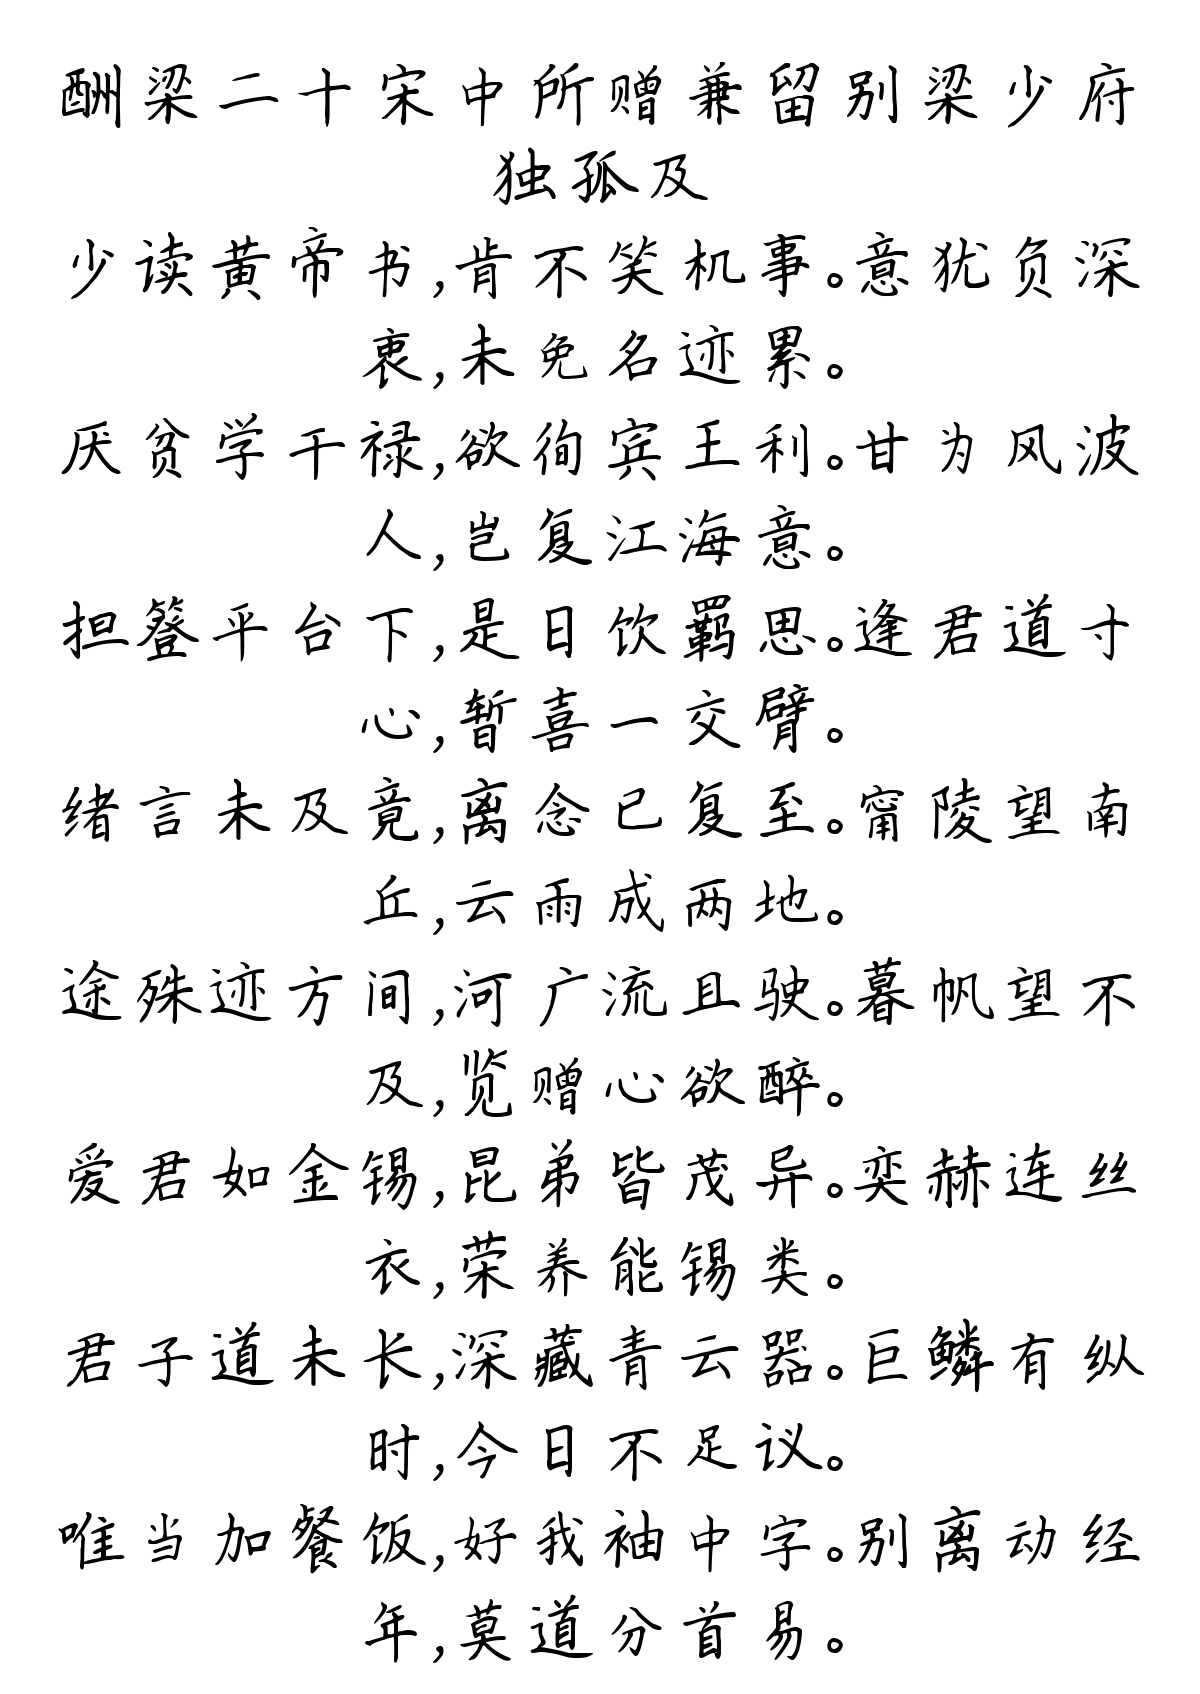 酬梁二十宋中所赠兼留别梁少府
独孤及
少读黄帝书,肯不笑机事。意犹负深
衷,未免名迹累。
厌贫学干禄,欲徇宾王利。甘为风波
人,岂复江海意。
担簦平台下,是日饮羁思。逢君道寸
心,暂喜一交臂。
绪言未及竟,离念已复至。甯陵望南
丘,云雨成两地。
途殊迹方间,河广流且驶。暮帆望不
及,览赠心欲醉。
爱君如金锡,昆弟皆茂异。奕赫连丝
衣,荣养能锡类。
君子道未长,深藏青云器。巨鳞有纵
时,今日不足议。
唯当加餐饭,好我袖中字。别离动经
年,莫道分首易。